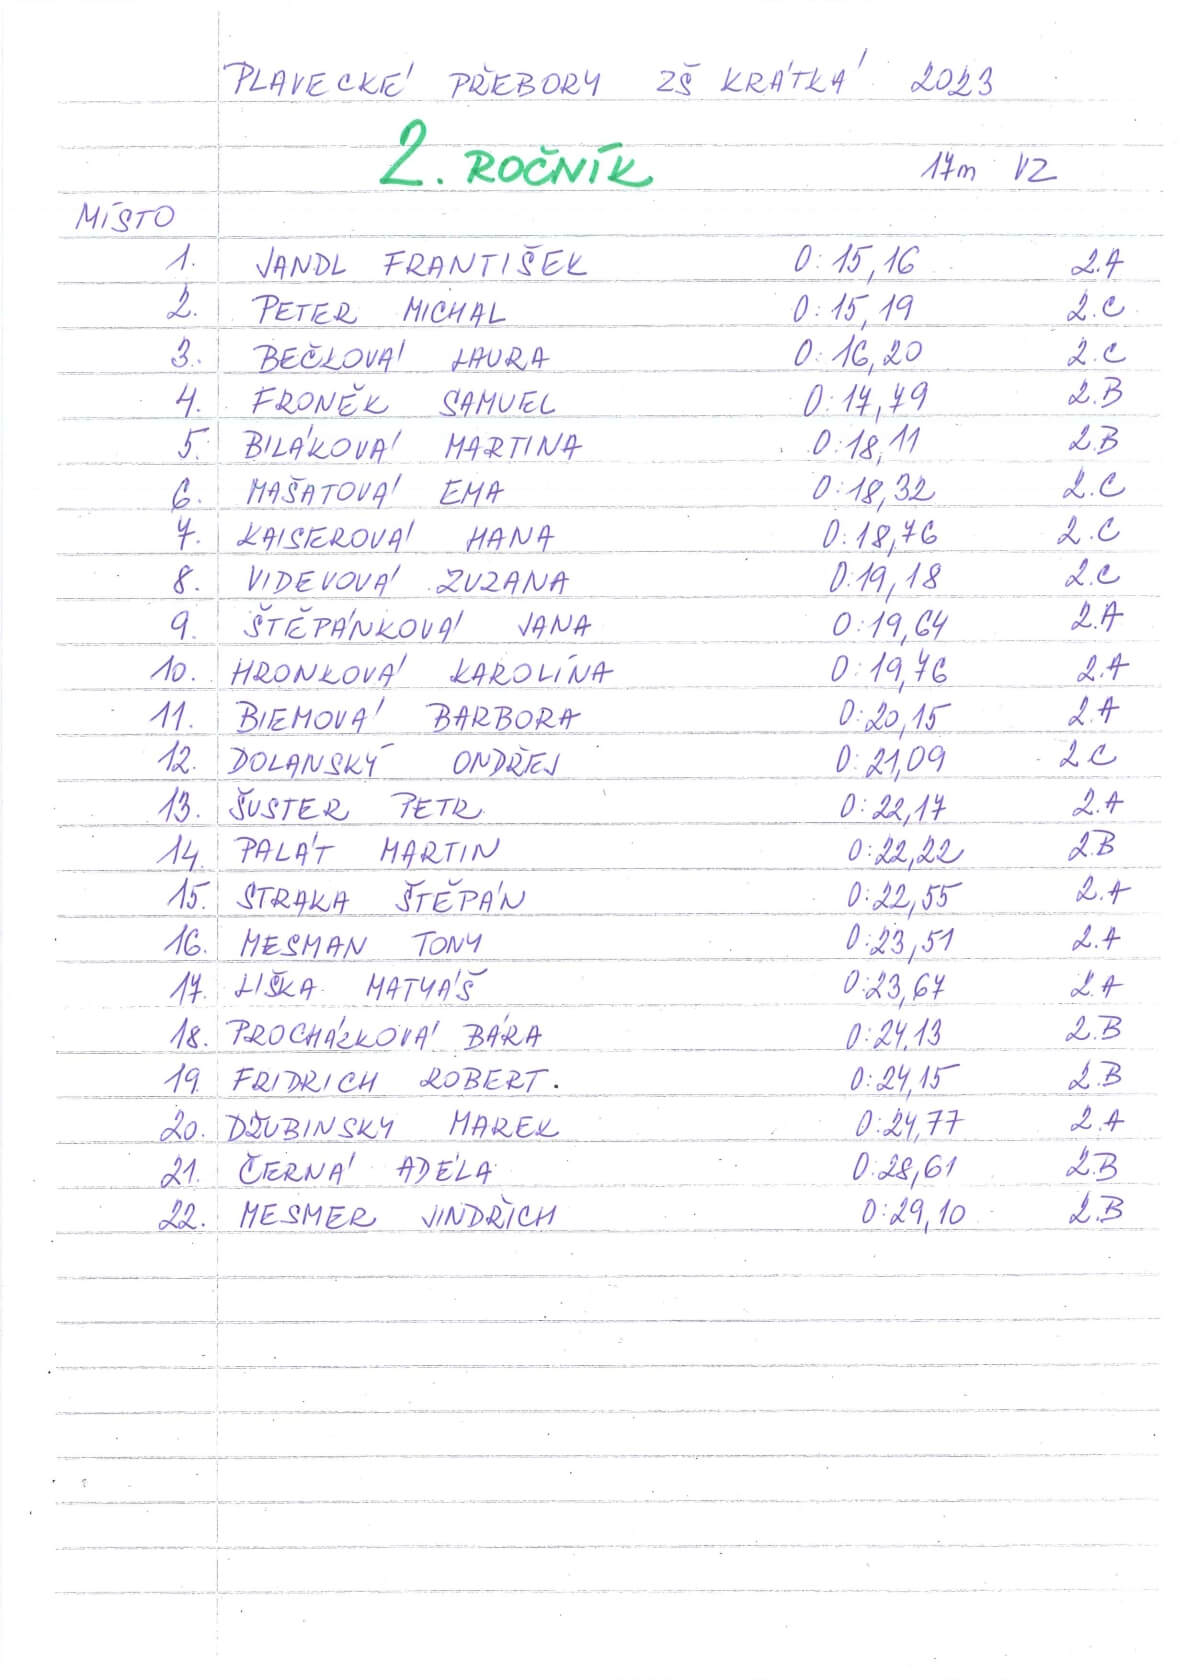 PLAVECKÉ PŘEBORY ZŠ KRÁTKÁ 2023
2. ROČNÍK 17m VZ
MÍSTO
1. JANDL FRANTIŠEK 0:15,16 2.A
2. PETER MICHAL 0:15,19 2.C
3. BEČLOVÁ LAURA 0:16,20 2.C
4. FRONĚK SAMUEL 0:17,79 2.B
5. BILÁKOVÁ MARTINA 0:18,11 2.B
6. MAŠATOVÁ EMA 0:18,32 2.C
7. KAISEROVÁ HANA 0:18,76 2.C
8. VIDEVOVÁ ZUZANA 0:19,18 2.C
9. ŠTĚPÁNKOVÁ JANA 0:19,64 2.A
10. HRONKOVÁ KAROLÍNA 0:19,76 2.A
11. BIEMOVÁ BARBORA 0:20,15 2.A
12. DOLANSKÝ ONDŘEJ 0:21,09 2C
13. ŠUSTER PETR 0:22,17 2.A
14. PALÁT MARTIN 0:22,22 2.B
15. STRAKA ŠTĚPÁN 0:22,55 2.A
16. MESMAN TONY 0:23,51 2.A
17. LIŠKA MATYÁŠ 0:23,67 2.A
18. PROCHÁZKOVÁ BÁRA 0:24,13 2.B
19. FRIDRICH ROBERT. 0:24,15 2.B
20. DŽUBINSKY MAREK 0:24,77 2.A
21. ČERNÁ ADÉLA 0:28,61 2.B
22. MESMER JINDŘICH 0:29,10 2.B